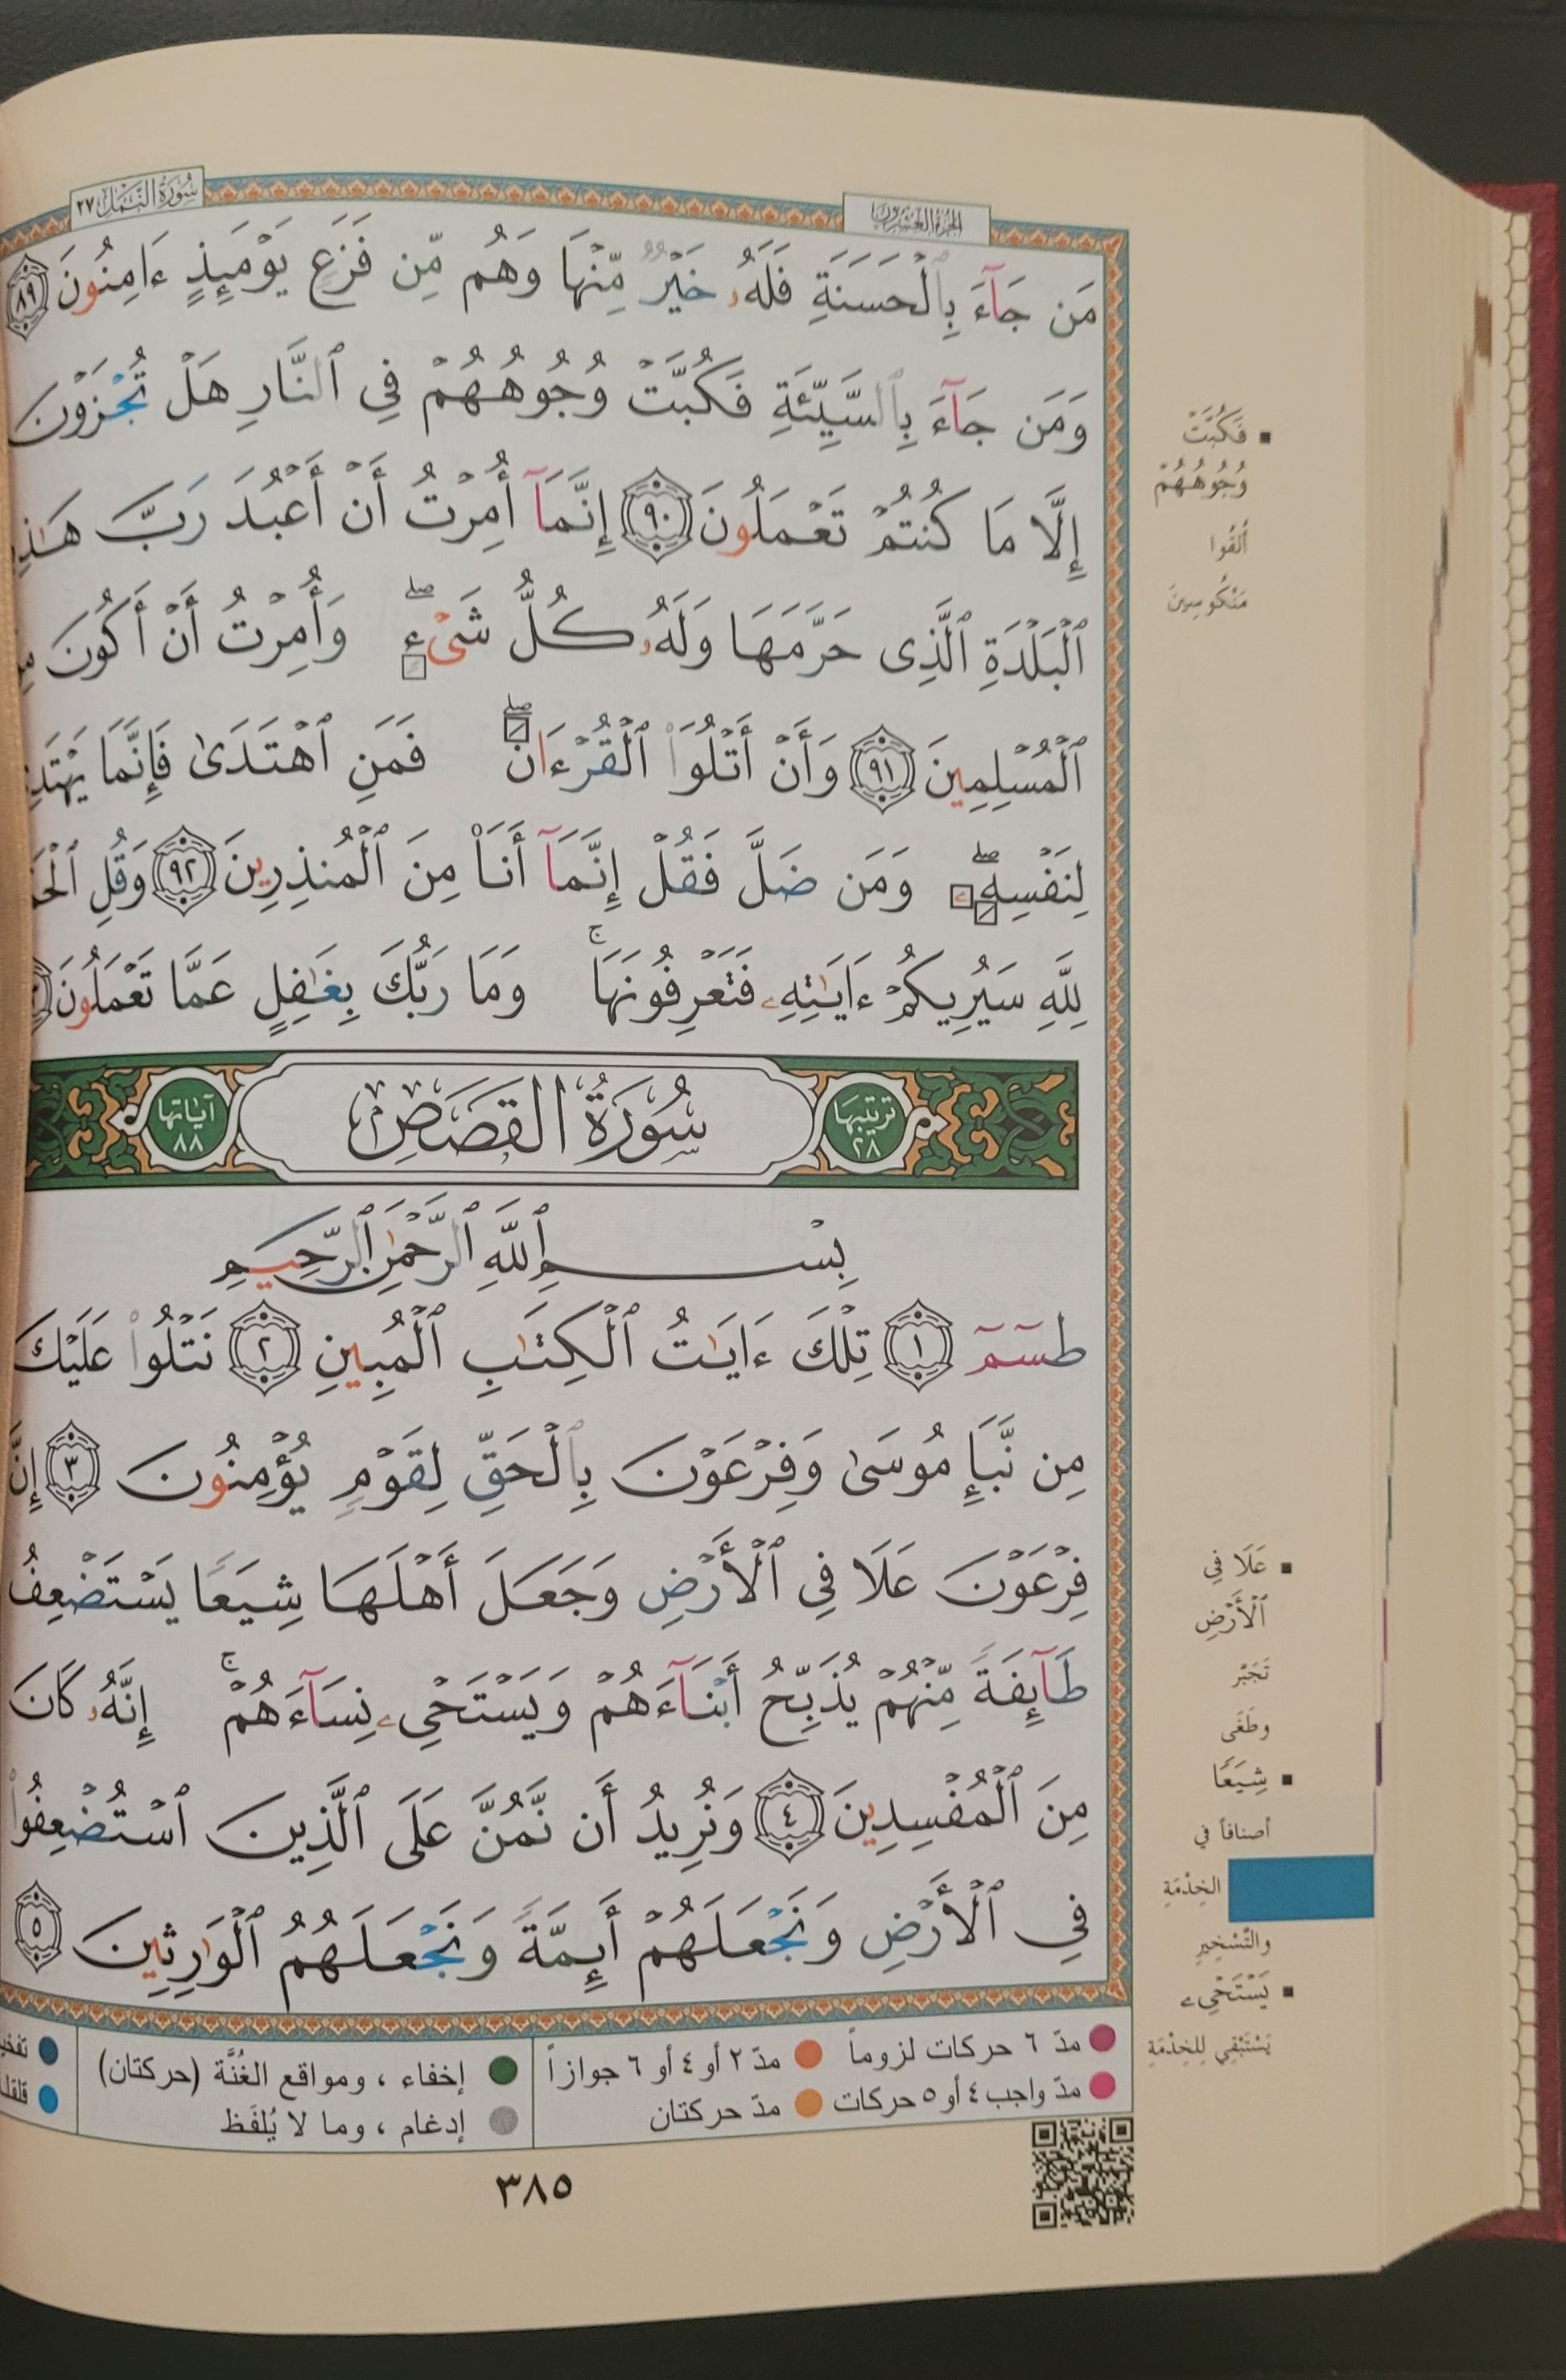 سُورَةُ النَّمْل ٢٧
الجُزءُ العِشرُون
مَن جَآءَ بِٱلْحَسَنَةِ فَلَهُۥ خَيْرٌ مِّنْهَا وَهُم مِّن فَزَعٍ يَوْمَئِذٍ ءَامِنُونَ ٨٩
وَمَن جَآءَ بِٱلسَّيِّئَةِ فَكُبَّتْ وُجُوهُهُمْ فِي ٱلنَّارِ هَلْ تُجْزَوْنَ
إِلَّا مَا كُنتُمْ تَعْمَلُونَ ٩٠ إِنَّمَآ أُمِرْتُ أَنْ أَعْبُدَ رَبَّ
ٱلْبَلْدَةِ ٱلَّذِى حَرَّمَهَا وَلَهُۥ كُلُّ شَىْءٍۖ وَأُمِرْتُ أَنْ أَكُونَ
ٱلْمُسْلِمِينَ ٩١ وَأَنْ أَتْلُوَا۟ ٱلْقُرْءَانَۖ فَمَنِ ٱهْتَدَىٰ فَإِنَّمَا
لِنَفْسِهِۦۖ وَمَن ضَلَّ فَقُلْ إِنَّمَآ أَنَا۠ مِنَ ٱلْمُنذِرِينَ ٩٢ وَقُلِ
لِلَّهِ سَيُرِيكُمْ ءَايَٰتِهِۦ فَتَعْرِفُونَهَاۚ وَمَا رَبُّكَ بِغَٰفِلٍ عَمَّا تَعْمَلُونَ
ترتيبها ٢٨ سُورَةُ القَصَصِ آياتها ٨٨
بِسْمِ ٱللَّهِ ٱلرَّحْمَٰنِ ٱلرَّحِيمِ
طسٓمٓ ١ تِلْكَ ءَايَٰتُ ٱلْكِتَٰبِ ٱلْمُبِينِ ٢ نَتْلُوا۟ عَلَيْكَ
مِن نَّبَإِ مُوسَىٰ وَفِرْعَوْنَ بِٱلْحَقِّ لِقَوْمٍ يُؤْمِنُونَ ٣ إِنَّ
فِرْعَوْنَ عَلَا فِى ٱلْأَرْضِ وَجَعَلَ أَهْلَهَا شِيَعًا يَسْتَضْعِفُ
طَآئِفَةً مِّنْهُمْ يُذَبِّحُ أَبْنَآءَهُمْ وَيَسْتَحْىِۦ نِسَآءَهُمْۚ إِنَّهُۥ كَانَ
مِنَ ٱلْمُفْسِدِينَ ٤ وَنُرِيدُ أَن نَّمُنَّ عَلَى ٱلَّذِينَ ٱسْتُضْعِفُوا۟
فِي ٱلْأَرْضِ وَنَجْعَلَهُمْ أَئِمَّةً وَنَجْعَلَهُمُ ٱلْوَٰرِثِينَ ٥
▪ فَكُبَّتْ
وُجُوهُهُمْ
أُلْقُوا
مَنْكُوسِينَ
▪ عَلَا فِي
ٱلْأَرْضِ
تَجَبَّرَ
وطَغَى
▪ شِيَعًا
أصنافاً في
الخِدْمَةِ
والتَّسْخِيرِ
▪ يَسْتَحْىِۦ
يَسْتَبْقِي لِلخِدْمَةِ
مدّ ٦ حركات لزوماً
مدّ ٢ أو ٤ أو ٦ جوازاً
مدّ واجب ٤ أو ٥ حركات
مدّ حركتان
إخفاء ، ومواقع الغُنَّة (حركتان)
إدغام ، وما لا يُلفَظ
٣٨٥